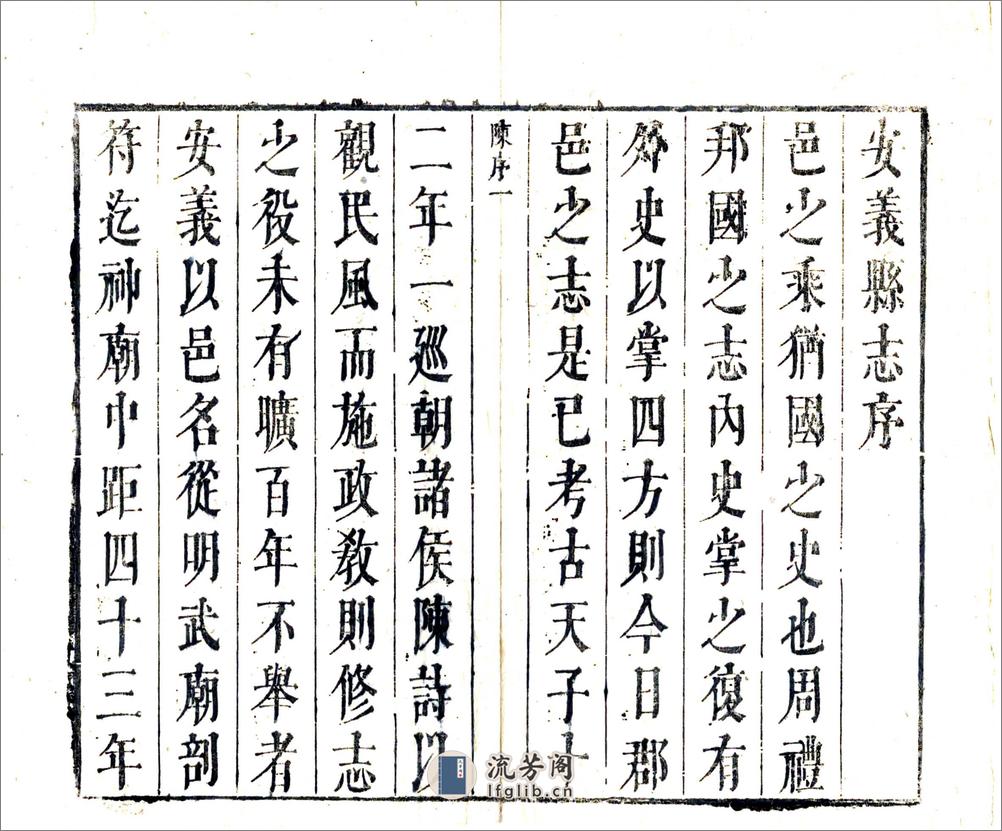 安義縣志序
邑之乘猶國之史也周禮
邦國之志內史掌之復有
外史以掌四方則今日郡
邑之志是已考古天子十
陳序一
二年一巡朝諸侯陳詩以
觀民風而施政教則修志
之役未有曠百年不舉者
安義以邑名從明武廟剖
符迄神廟中距四十三年
流芳阁
lfglib.cn